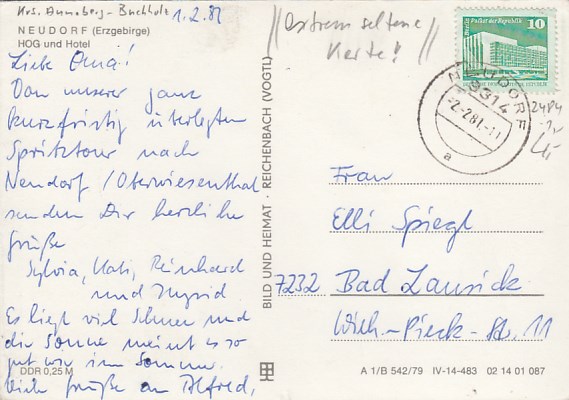 Krs. Annaberg-Buchholz 1.2.81
NEUDORF (Erzgebirge)
HOG und Hotel
Liebe Oma!
Von unserer ganz
kurzfristig überlegten
Spritztour nach
Neudorf / Oberwiesenthal
senden Dir herzliche
Grüße
Sylvia, Kati, Reinhard
und Ingrid
Es liegt viel Schnee und
die Sonne meint es so
gut wie im Sommer.
Viele Grüße an Alfred,
DDR 0,25 M
BILD UND HEIMAT · REICHENBACH (VOGTL)
//extrem seltene
Karte! //
Palast der Republik 10
NEUDORF
9314
-2.-2.81.-11
a
2484
Frau
Elli Spiegl
7232 Bad Lausick
Wilh.-Pieck-Str. 11
A 1/B 542/79 IV-14-483 02 14 01 087